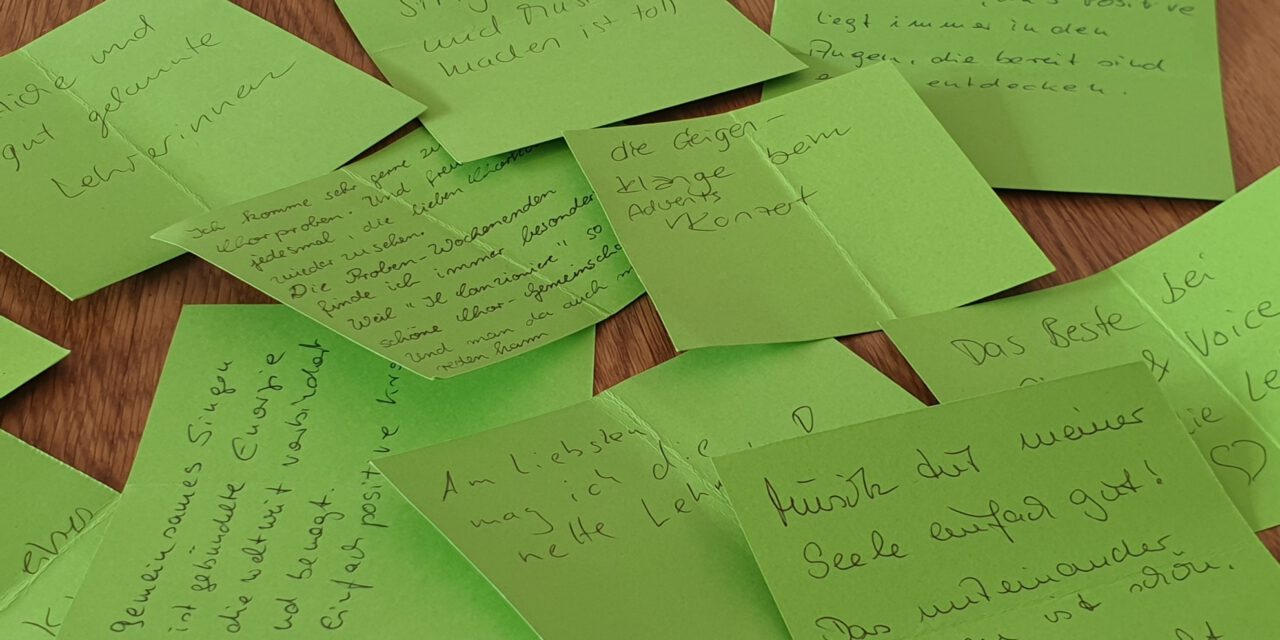 und
gut gelaunte
Lehrerinnen
und Musi
machen ist toll
liegt immer in den
Augen, die bereit sind
entdecken.
Ich komme sehr gerne zu
Chorproben. Und freu
jedesmal die lieben
wieder zu sehen.
Die Proben-Wochenenden
finde ich immer besonders
Weil "Il Canzoniere" so
schöne Chor-Gemeinscha
und man da auch
reden kann
die Geigen-
klänge beim
Advents
Konzert
Das Beste bei
& Voice
ie Le
gemeinsames Singen
ist gebündelte Energie
die weltweit verbindet
und bewegt.
Einfach positive
Am liebsten
mag ich die
nette Leh
D
Musik tut meiner
Seele einfach gut!
Das miteinander
ist schön.